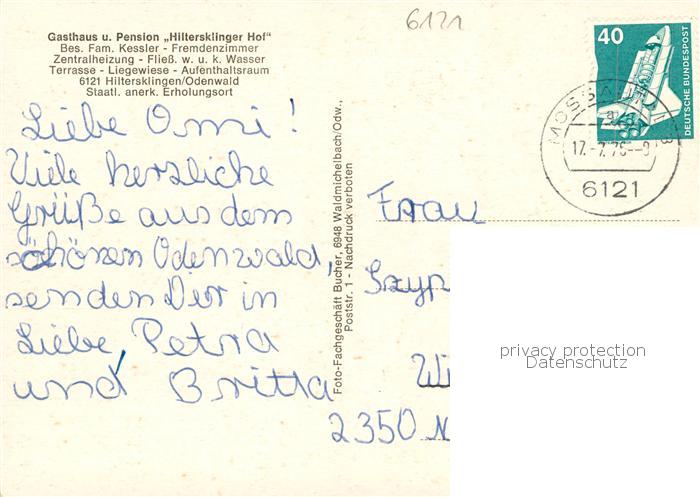 6121
Gasthaus u. Pension „Hiltersklinger Hof“
Bes. Fam. Kessler - Fremdenzimmer
Zentralheizung - Fließ. w. u. k. Wasser
Terrasse - Liegewiese - Aufenthaltsraum
6121 Hiltersklingen/Odenwald
Staatl. anerk. Erholungsort
Liebe Omi!
Viele herzliche
Grüße aus dem
schönen Odenwald,
senden Dir in
Liebe, Petra
und Britta
Foto-Fachgeschäft Bucher, 6948 Waldmichelbach/Odw.,
Poststr. 1 - Nachdruck verboten
40
DEUTSCHE BUNDESPOST
6121
Frau
privacy protection
Datenschutz
2350 N